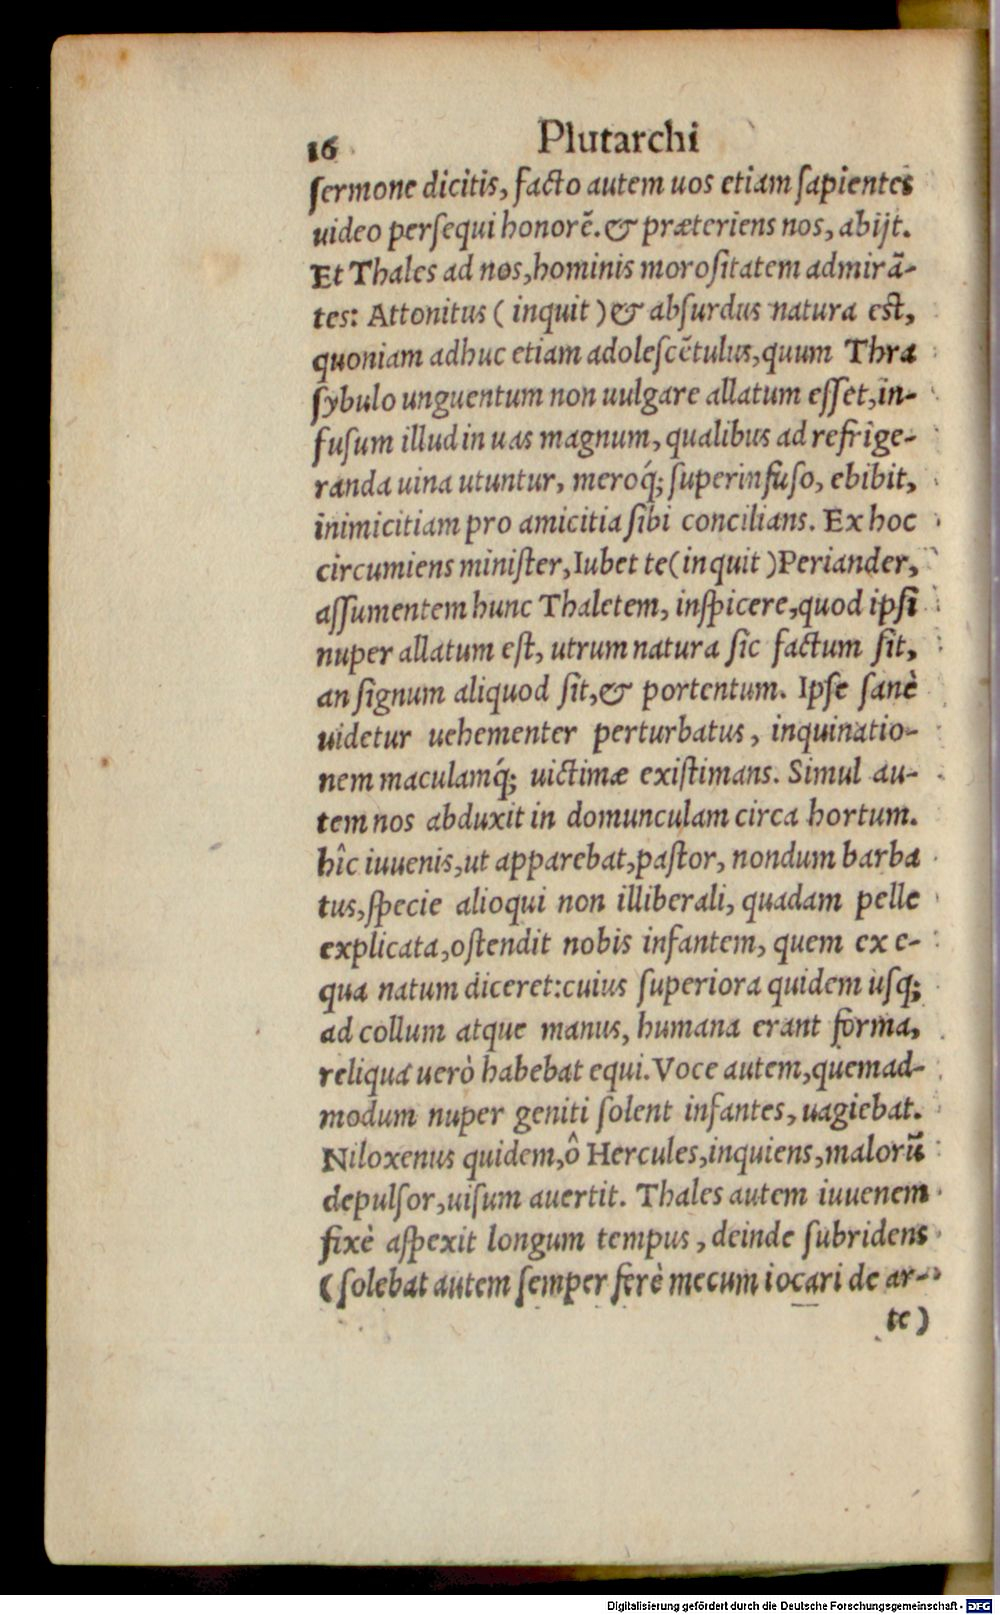 16 Plutarchi
sermone dicitis, facto autem uos etiam sapientes
uideo persequi honorẽ. & præteriens nos, abijt.
Et Thales ad nos, hominis morositatem admirã-
tes: Attonitus (inquit) & absurdus natura est,
quoniam adhuc etiam adolescẽtulus, quum Thra
sybulo unguentum non uulgare allatum esset, in-
fusum illud in uas magnum, qualibus ad refrige-
randa uina utuntur, meroq́; superinfuso, ebibit,
inimicitiam pro amicitia sibi concilians. Ex hoc
circumiens minister, Iubet te (inquit) Periander,
assumentem hunc Thaletem, inspicere, quod ipsi
nuper allatum est, utrum natura sic factum sit,
an signum aliquod sit, & portentum. Ipse sanè
uidetur uehementer perturbatus, inquinatio-
nem maculamq́; uictimæ existimans. Simul au-
tem nos abduxit in domunculam circa hortum.
hîc iuuenis, ut apparebat, pastor, nondum barba
tus, specie alioqui non illiberali, quadam pelle
explicata, ostendit nobis infantem, quem ex e-
qua natum diceret: cuius superiora quidem usq;
ad collum atque manus, humana erant forma,
reliqua uerò habebat equi. Voce autem, quemad-
modum nuper geniti solent infantes, uagiebat.
Niloxenus quidem, ô Hercules, inquiens, malorũ
depulsor, uisum auertit. Thales autem iuuenem
fixè aspexit longum tempus, deinde subridens
(solebat autem semper ferè mecum iocari de ar-
te)
Digitalisierung gefördert durch die Deutsche Forschungsgemeinschaft - DFG